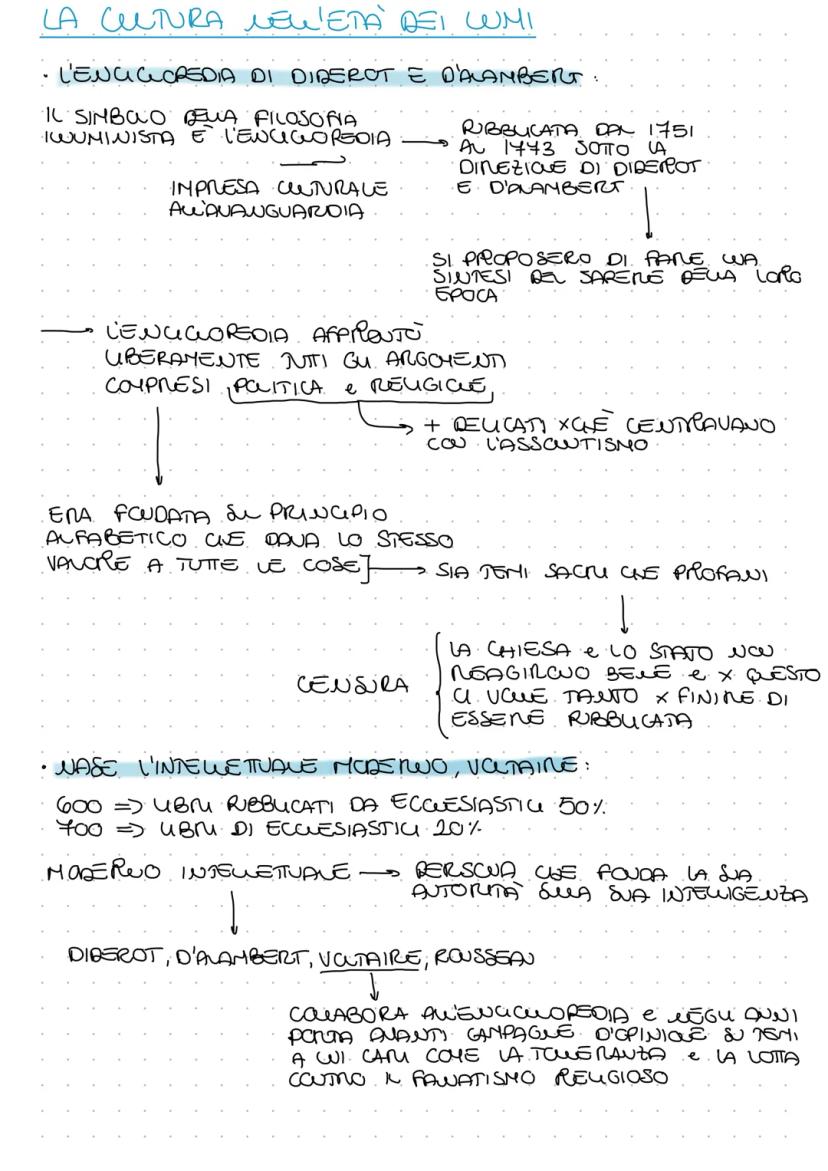 LA CULTURA NELL'ETÀ DEI LUMI
· L'ENCICLOPEDIA DI DIDEROT E D'ALAMBERT:
IL SIMBOLO DELLA FILOSOFIA
ILLUMINISTA È L'ENCICLOPEDIA → PUBBLICATA DAL 1751
AL 1773 SOTTO LA
DIREZIONE DI DIDEROT
E D'ALAMBERT
IMPRESA CULTURALE
ALL'AVANGUARDIA
SI PROPOSERO DI FARE UNA
SINTESI DEL SAPERE DELLA LORO
EPOCA
→ L'ENCICLOPEDIA AFFRONTÒ
LIBERAMENTE TUTTI GLI ARGOMENTI
COMPRESI POLITICA e RELIGIONE
→ + DELICATI XCHÈ CENTRAVANO
CON L'ASSOLUTISMO
ERA FONDATA SU PRINCIPIO
ALFABETICO CHE DAVA LO STESSO
VALORE A TUTTE LE COSE] → SIA TEMI SACRI CHE PROFANI
CENSURA
LA CHIESA e LO STATO NON
REAGIRONO BENE e X QUESTO
CI VOLLE TANTO X FINIRE DI
ESSERE PUBBLICATA
· NASCE L'INTELLETTUALE MODERNO, VOLTAIRE:
600 => LIBRI PUBBLICATI DA ECCLESIASTICI 50%
700 => LIBRI DI ECCLESIASTICI 20%
MODERNO INTELLETTUALE → PERSONA CHE FONDA LA SUA
AUTORITÀ SULLA SUA INTELLIGENZA
DIDEROT, D'ALAMBERT, VOLTAIRE, ROUSSEAU
COLLABORA ALL'ENCICLOPEDIA e NEGLI ANNI
PORTA AVANTI CAMPAGNE D'OPINIONE SU TEMI
A LUI CARI COME LA TOLLERANZA e LA LOTTA
CONTRO IL FANATISMO RELIGIOSO